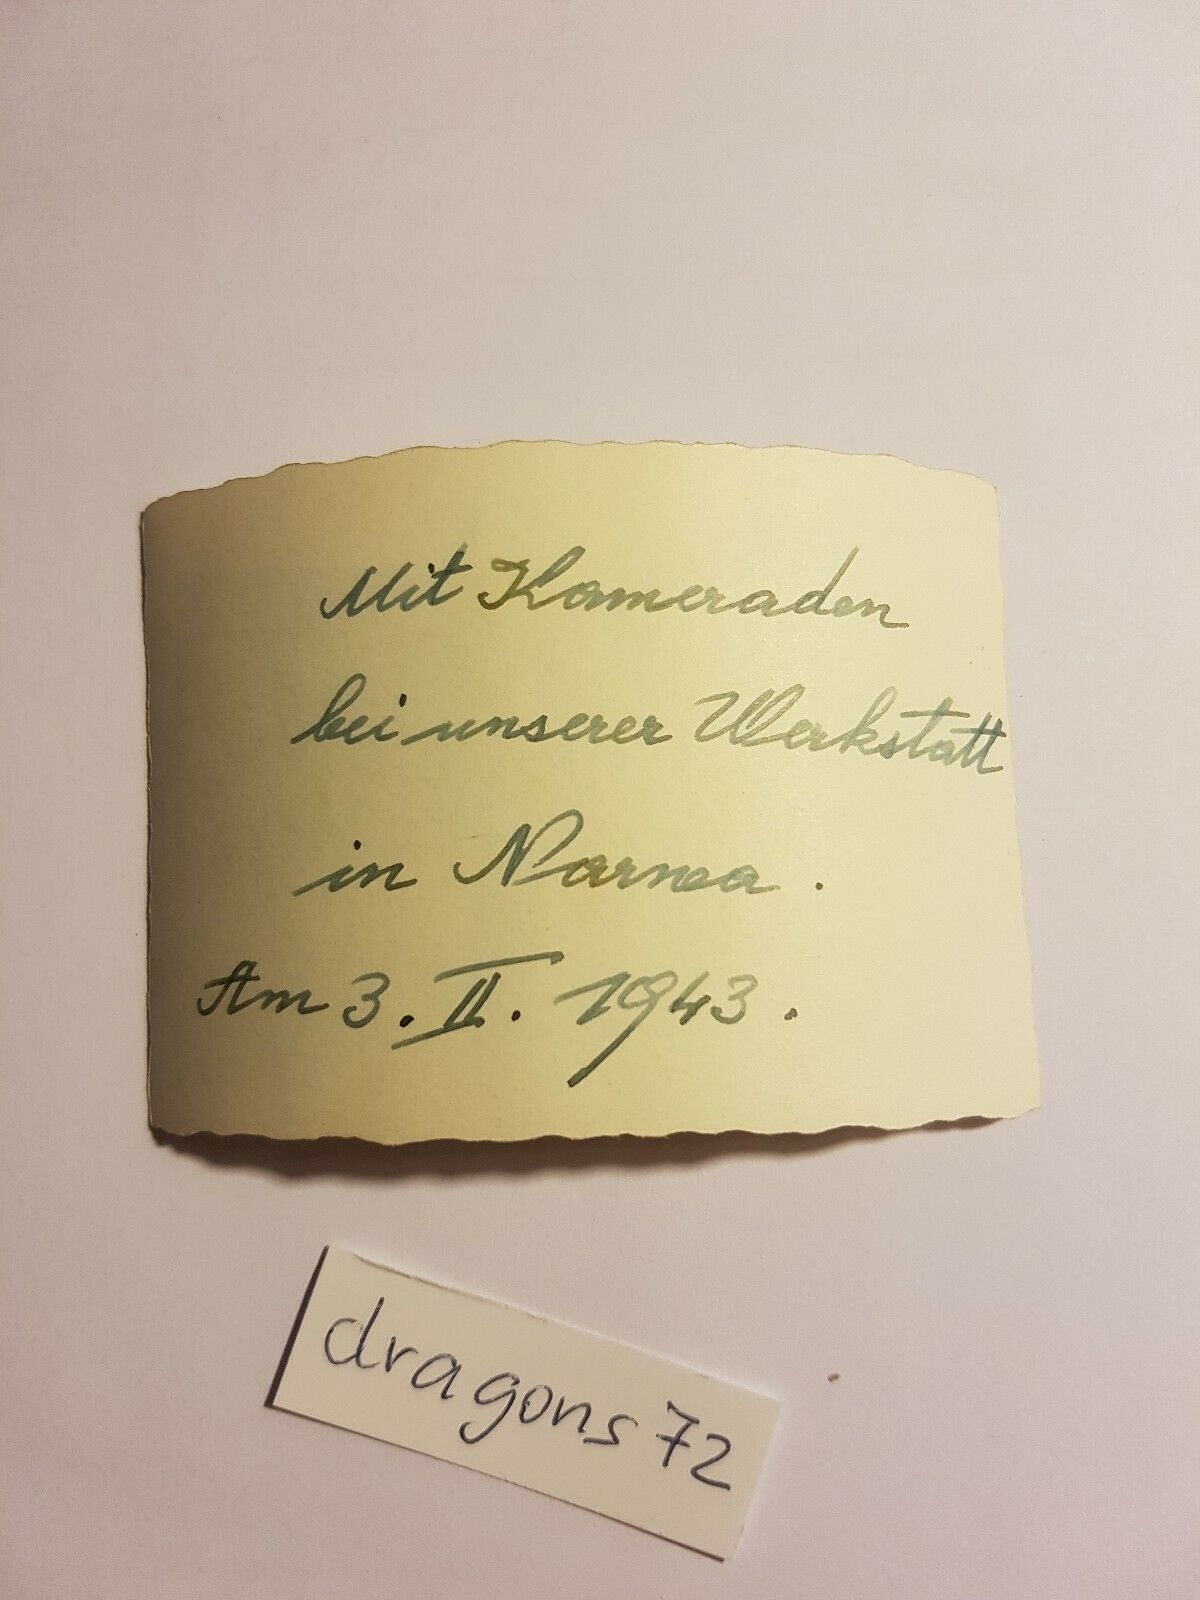 Mit Kameraden
bei unserer Werkstatt
in Narwa.
Am 3. II. 1943.
dragons 72